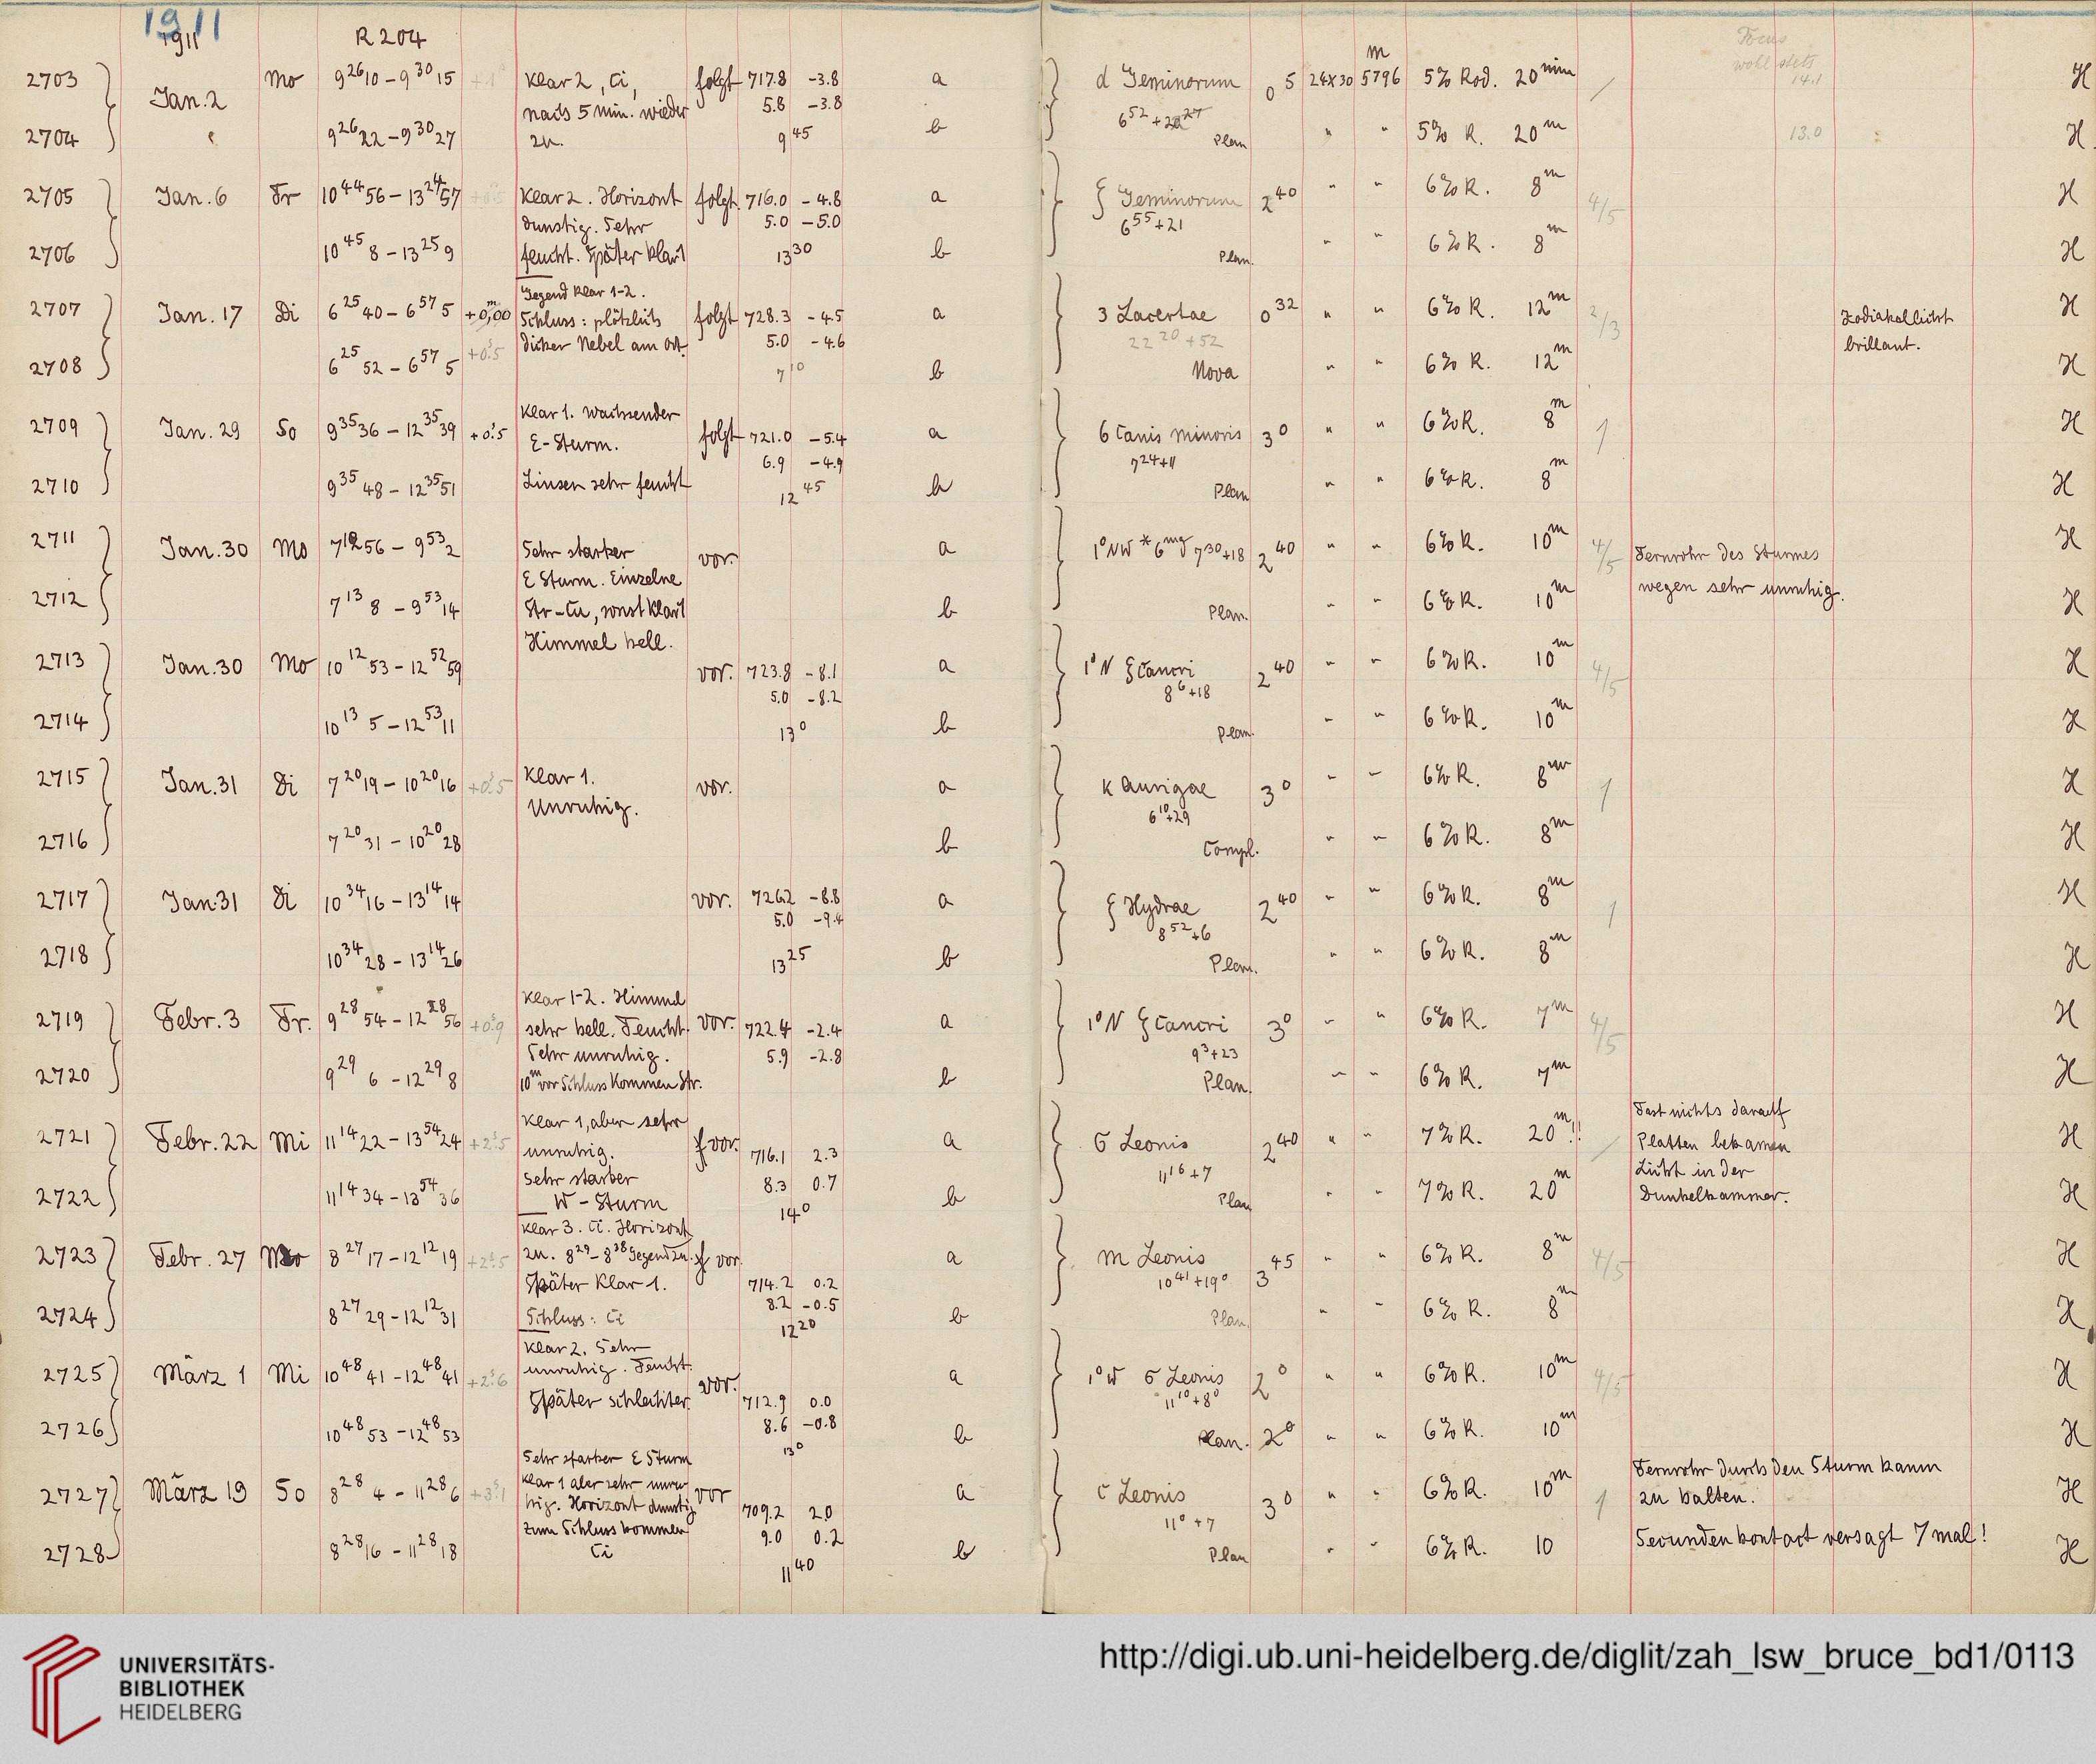 1911
1911 R 204 Focus
m wohl stets
2703 Jan. 2 Mo 9 26 10 – 9 30 15 klar 2, Ci, folgt 717.8 –3.8 a d Geminorum 0 5 24x30 5796 5% Rod. 20 min 14.1 H
nach 5 min. wieder 5.8 –3.8 6 52 +
2704 9 26 22 – 9 30 27 zu. 9 45 b Plan " " 5% R. 20 m 13.0 H
2705 Jan. 6 Fr 10 44 56 – 13 24 57 klar 2. Horizont folgt. 716.0 –4.8 a ξ Geminorum 2 40 " " 6% R. 8 m 4/5 H
dunstig. Sehr 5.0 –5.0 6 55 +21
2706 10 45 8 – 13 25 9 feucht. Später klar 1 13 30 b Plan. " " 6% R. 8 m H
Gegend klar 1–2.
2707 Jan. 17 Di 6 25 40 – 6 57 5 +0,00 m Schluss: plötzlich folgt 728.3 –4.5 a 3 Lacertae 0 32 " " 6% R. 12 m 2/3 Zodiakallicht H
+0.5 s dicker Nebel am Ort. 5.0 –4.6 22 20 +52 brillant.
2708 6 25 52 – 6 57 5 7 10 b Nova " " 6% R. 12 m H
klar 1. Wachsender
2709 Jan. 29 So 9 35 36 – 12 35 39 +0.5 s E-Sturm. folgt 721.0 –5.4 a 6 Canis minoris 3 0 " " 6% R. 8 m 1 H
6.9 –4.9 7 24 +11
2710 9 35 48 – 12 35 51 Linsen sehr feucht 12 45 b Plan " " 6% R. 8 m H
2711 Jan. 30 Mo 7 12 56 – 9 53 2 Sehr starker vor. a 1° NW * 6 mg 7 30 +18 2 40 " " 6% R. 10 m 4/5 Fernrohr des Sturmes H
E Sturm. Einzelne wegen sehr unruhig.
2712 7 13 8 – 9 53 14 Str-Cu, sonst klar 1 b Plan. " " 6% R. 10 m H
Himmel hell.
2713 Jan. 30 Mo 10 12 53 – 12 52 59 vor. 723.8 –8.1 a 1° N ξ Cancri 2 40 " " 6% R. 10 m 4/5 H
5.0 –8.2 8 6 +18
2714 10 13 5 – 12 53 11 13 0 b Plan. " " 6% R. 10 m H
2715 Jan. 31 Di 7 20 19 – 10 20 16 +0.5 s klar 1. vor. a κ Aurigae 3 0 " " 6% R. 8 m 1 H
Unruhig. 6 10 +29
2716 7 20 31 – 10 20 28 b Compl. " " 6% R. 8 m H
2717 Jan. 31 Di 10 34 16 – 13 14 14 vor. 726.2 –8.8 a ξ Hydrae 2 40 " " 6% R. 8 m 1 H
5.0 –9.4 8 52 +6
2718 10 34 28 – 13 14 26 13 25 b Plan. " " 6% R. 8 m H
klar 1–2. Himmel
2719 Febr. 3 Fr. 9 28 54 – 12 28 56 +0.9 s sehr hell. Feucht. vor. 722.4 –2.4 a 1° N ξ Cancri 3 0 " " 6% R. 7 m 4/5 H
Sehr unruhig. 5.9 –2.8 9 3 +23
2720 9 29 6 – 12 29 8 10 m vor Schluss kommen Str. b Plan. " " 6% R. 7 m H
klar 1, aber sehr Fast nichts darauf
2721 Febr. 22 Mi 11 14 22 – 13 54 24 +2.5 s unruhig. vor. 716.1 2.3 a σ Leonis 2 40 " " 7% R. 20 m !! Platten bekamen H
Sehr starker 8.3 0.7 11 16 +7 Licht in der
2722 11 14 34 – 13 54 36 W – Sturm 14 0 b Plan " " 7% R. 20 m Dunkelkammer. H
klar 3. Ci. Horizont
2723 Febr. 27 Mo 8 27 17 – 12 12 19 +2.5 s zu. 8 29 – 8 38 Gegend zu. vor. a m Leonis 3 45 " " 6% R. 8 m 4/5 H
Später klar 1. 714.2 0.2 10 41 +19 0
8.2 –0.5
2724 8 27 29 – 12 12 31 Schluss: Ci 12 20 b Plan. " " 6% R. 8 m H
klar 2. Sehr
2725 März 1 Mi 10 48 41 – 12 48 41 +2.6 s unruhig. Feucht. vor. a 1° W σ Leonis 2 0 " " 6% R. 10 m 4/5 H
Später schlechter. 712.9 0.0 11 10 +8 0
2726 10 48 53 – 12 48 53 8.6 –0.8 b Plan. 2 0 " " 6% R. 10 m H
13 0
Sehr starker E Sturm Fernrohr durch den Sturm kaum
2727 März 19 So 8 28 4 – 11 28 6 +3.1 s klar 1 aber sehr unru- vor a c Leonis 3 0 " " 6% R. 10 m 1 zu halten. H
hig. Horizont dunstig 709.2 2.0 11 0 +7
2728 8 28 16 – 11 28 18 zum Schluss kommen 9.0 0.2 b Plan " " 6% R. 10 Secundenkontact versagt 7 mal! H
Ci 11 40
UNIVERSITÄTS-
BIBLIOTHEK
HEIDELBERG
http://digi.ub.uni-heidelberg.de/diglit/zah_lsw_bruce_bd1/0113